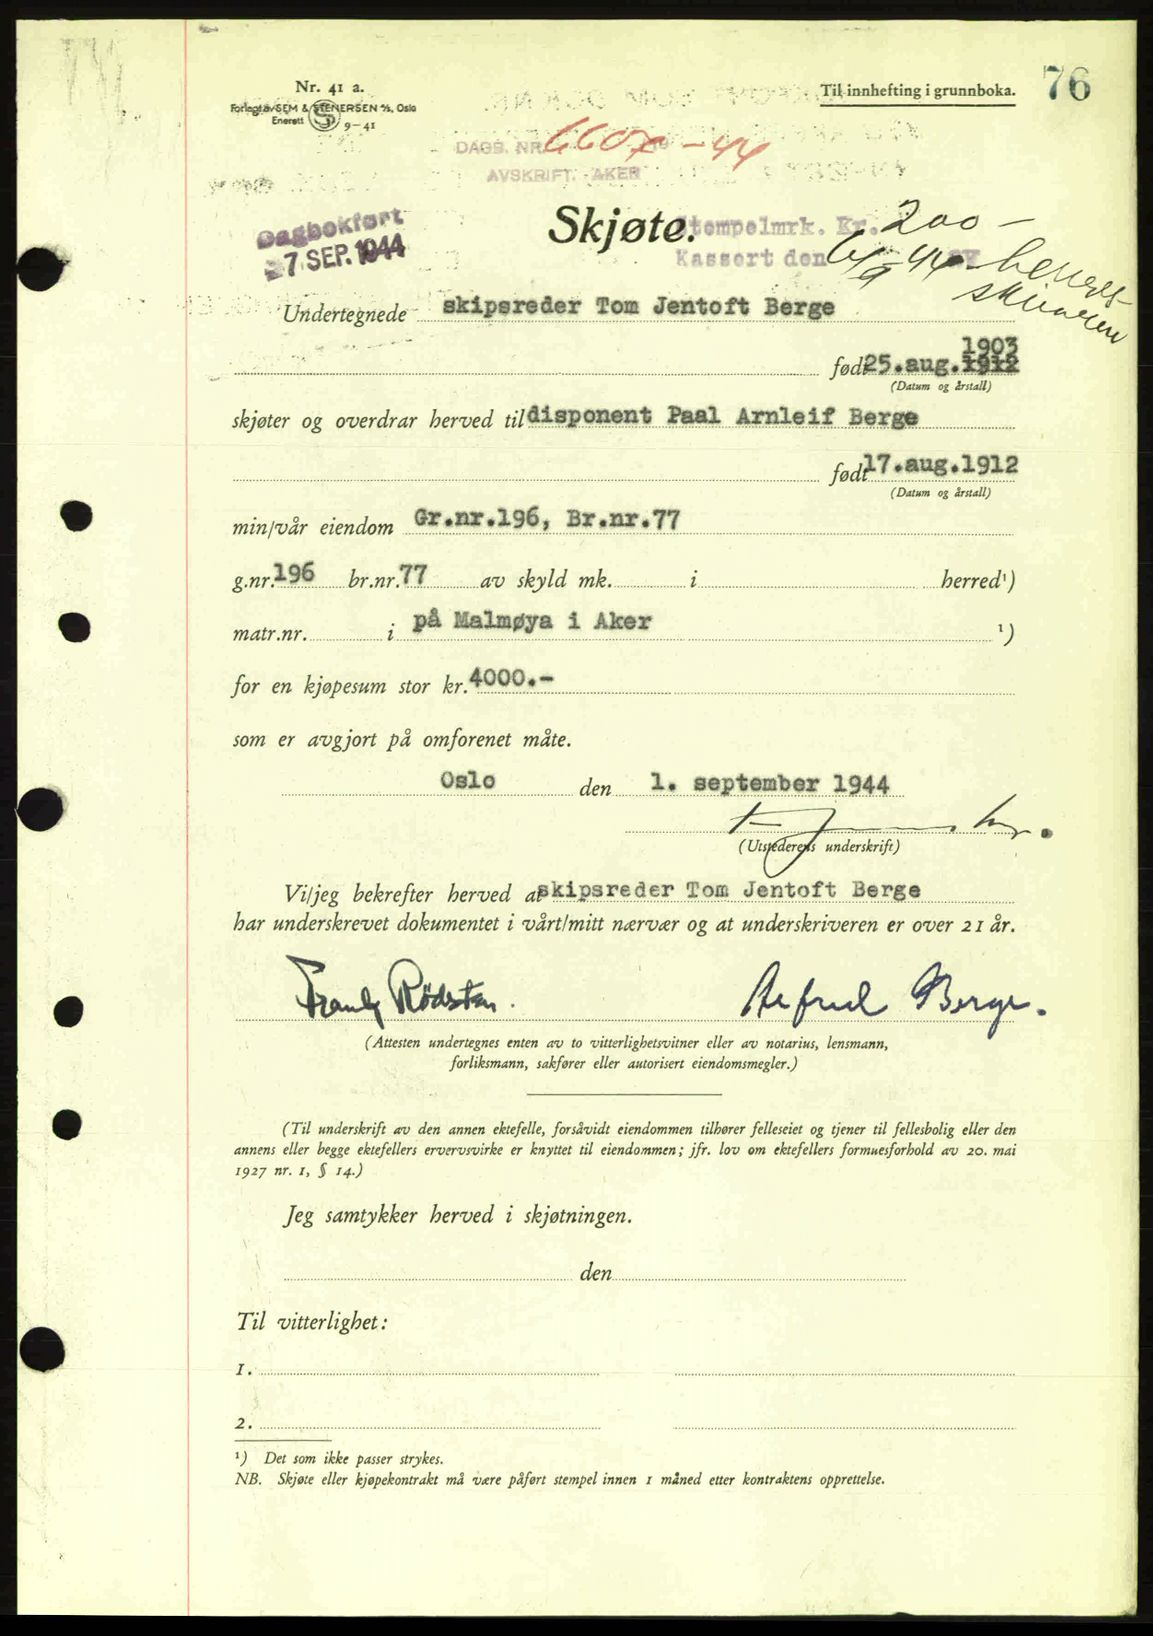 Nr. 41 a.
Forlagt av SEM & STENERSEN A/S, Oslo
Enerett 9-41
Til innhefting i grunnboka. 76
DAGB. NR. 6607 19 -44
AVSKRIFT. AKER
Dagbokført
-7 SEP. 1944
Skjøte.
Stempelmrk. Kr. 200-
Kassert den 6/9-44
Undertegnede skipsreder Tom Jentoft Berge
1903
født 25.aug.1912
(Datum og årstall)
skjøter og overdrar herved til disponent Paal Arnleif Berge
født 17.aug.1912
(Datum og årstall)
min/vår eiendom Gr.nr.196, Br.nr.77
g.nr. 196 br.nr. 77 av skyld mk. i herred¹)
matr.nr. i på Malmøya i Aker ¹)
for en kjøpesum stor kr. 4000.-
som er avgjort på omforenet måte.
Oslo den 1. september 1944
(Utstederens underskrift)
Vi/jeg bekrefter herved at skipsreder Tom Jentoft Berge
har underskrevet dokumentet i vårt/mitt nærvær og at underskriveren er over 21 år.
Alfred Berge.
(Attesten undertegnes enten av to vitterlighetsvitner eller av notarius, lensmann,
forliksmann, sakfører eller autorisert eiendomsmegler.)
(Til underskrift av den annen ektefelle, forsåvidt eiendommen tilhører felleseiet og tjener til fellesbolig eller den
annens eller begge ektefellers ervervsvirke er knyttet til eiendommen; jfr. lov om ektefellers formuesforhold av 20. mai
1927 nr. 1, § 14.)
Jeg samtykker herved i skjøtningen.
den
Til vitterlighet:
1.
2.
¹) Det som ikke passer strykes.
NB. Skjøte eller kjøpekontrakt må være påført stempel innen 1 måned etter kontraktens opprettelse.